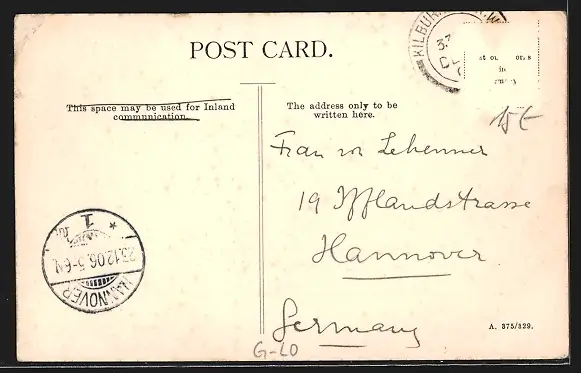 POST CARD.
This space may be used for Inland
communication.
The address only to be
written here.
KILBURN
15€
Frau von
19 Ifflandstrasse
Hannover
Germany
HANNOVER
23.12.06. 5-6N.
1
G-LO
A. 375/829.